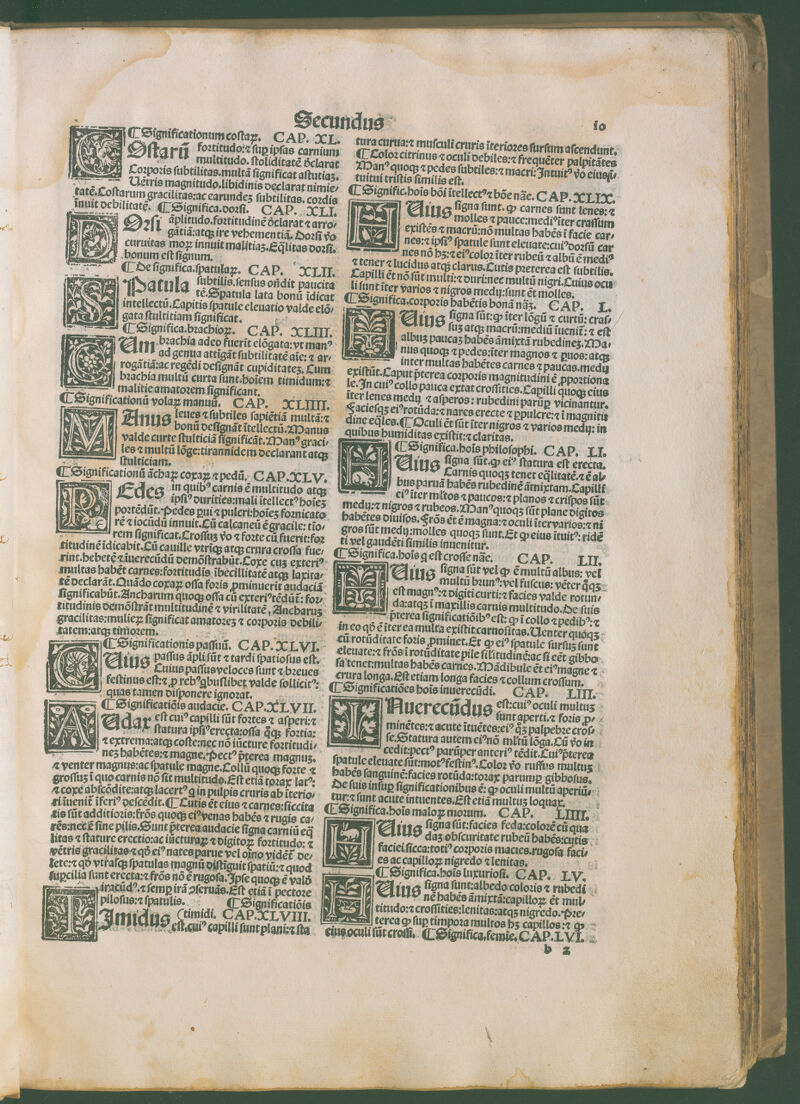 Secundus
10
¶ Significationum costaꝝ. CAP. XL.
COstarū fortitudo: ⁊ sup ipsas carnium
multitudo. stoliditatē ꝺclarat
Corporis subtilitas. multā significat astutiaꝫ.
Uētris magnitudo. libidinis declarat nimie-
tatē. Costarum gracilitas: ac earundeꝫ subtilitas. cordis
inuit debilitatē. ¶ Significa. dorsi. CAP. XLI.
DOrsi āplitudo. fortitudinē ꝺclarat ⁊ arro
gātiā: atqꝫ ire vehementiā. Dorsi ṽo
curuitas moꝝ innuit malitiaꝫ. Eq̄litas dorsi.
bonum est signum.
¶ De significa. spatulaꝝ. CAP. XLII.
SPatula subtilis. sensus oñdit paucita
tē. Spatula lata bonū īdicat
intellectū. Capitis spatule eleuatio valde elō
gata stultitiam significat.
¶ Significa. brachioꝝ. CAP. XLIII.
CUm brachia adeo fuerit elōgata: vt manꝰ
ad genua attīgāt subtilitatē aīe: ⁊ ar-
rogātiā: ac regēdi designāt cupiditateꝫ. Cum
brachia multū curta sunt. hoīem timidum: ⁊
malitie amatorem significant.
¶ Significationū volaꝝ manuū. CAP. XLIIII.
MAnus leues ⁊ subtiles sapiētiā multā: ⁊
bonū designāt ītellectū. Manus
valde curte stulticiā significāt. Manꝰ graci/
les ⁊ multū lōge: tirannidem declarant atqꝫ
stulticiam.
¶ Significationū āchaꝝ coxaꝝ ⁊ pedū. CAP. XLV.
PEdes in quibꝰ carnis ē multitudo atqꝫ
ipsiꝰ durities: mali ītellectꝰ hoīeꝫ
portēdūt. Pedes pui ⁊ pulcri: hoīeꝫ fornicato
rē ⁊ iocūdū innuit. Cū calcaneū ē gracile: tio/
rem significat. Crossuꝫ ṽo ⁊ forte cū fuerit: for
titudinē īdicabit. Cū cauille vtriqꝫ atqꝫ crura crossa fue/
rint. hebetē ⁊ iuerecūdū demōstrabūt. Coxe cuꝫ exteriꝰ
multas habēt carnes: fortitudīs ībecillitatē atqꝫ laxita/
tē declarāt. Quādo coxaꝝ ossa foris prominuerit audaciā
significabūt. Ancharum quoqꝫ ossa cū exteriꝰtēdūt: for/
titudinis demōstrāt multitudinē ⁊ virilitatē. Ancharuꝫ
gracilitas: mulieꝝ significat amatoreꝫ ⁊ corporis debili
tatem: atqꝫ timorem.
¶ Significationis passuū. CAP. XLVI.
CUius passus āpli sūt ⁊ tardi spatiosus est.
Cuius passus veloces sunt ⁊ breues
festinus est: ⁊ ꝓ rebꝰ qbuslibet valde sollicitꝰ:
quas tamen disponere ignorat.
¶ Significatiōis audacie. CAP. XLVII.
AUdax est cuiꝰ capilli sūt fortes ⁊ asperi: ⁊
statura ipsiꝰ erecta: ossa qꝫ fortia:
⁊ extrema: atqꝫ coste: nec nō iūcture fortitudi/
neꝫ habētes: ⁊ magne. Pectꝰ p̄terea magnuꝫ.
⁊ venter magnus: ac spatule magne. Collū quoqꝫ forte ⁊
grossuꝫ ī quo carnis nō sit multitudo. Est etiā torax latꝰ:
⁊ coxe abscōdite: atqꝫ lacertꝰ q in pulpis cruris ab īterio/
ri iuenit īferiꝰ descēdit. ¶ Cutis ēt eius ⁊ carnes: siccita
tis sūt additioris: frōs quoqꝫ eiꝰ venas habēs ⁊ rugis ca/
rēs: nec ē sine pilis. Sunt p̄terea audacie signa carniū eq̄
litas ⁊ stature erectio: ac iūcturaꝝ ⁊ digitoꝝ fortitudo: ⁊
vētris gracilitas ⁊ qd ei nates parue vel oīno vidēt de/
lete: ⁊ qd vtrasqꝫ spatulas magnū distīguit spatiū: ⁊ quod
supcilia sunt erecta: ⁊ frōs nō ē rugosa. Ipse quoqꝫ ē vald
iracūdꝰ. ⁊ semp irā ꝯseruās. Est etiā ī pectore
pilosus: ⁊ spatulis. ¶ Significatiōis
TImidus (timidi. CAP. XLVIII.
est. cuiꝰ capilli sunt plani: ⁊ sta
tura curua: ⁊ musculi cruris īteriores sursum ascendunt.
¶ Color citrinus ⁊ oculi debiles: ⁊ frequēter palpitātes
Manꝰ quoqꝫ ⁊ pedes subtiles: ⁊ macri: Intuitꝰ ṽo eius si/
tuitui tristis similis est.
¶ Signific. hoīs boī ītellectꝰ ⁊ bōe nāe. CAP. XLIX.
HUius signa sunt. ꝙ carnes sunt lenes: ⁊
molles ⁊ pauce: mediꝰ īter crassum
existēs ⁊ macrū: nō multas habēs ī facie car/
nes: ⁊ ipsiꝰ spatule sunt eleuate: cuiꝰ dorsū car
nes nō hꝫ: ⁊ eiꝰ color īter rubeū ⁊ albū ē mediꝰ
⁊ tener ⁊ lucidus atqꝫ clarus. Cutis preterea est subtilis.
Capilli ēt nō sūt multi: ⁊ duri: nec multū nigri. Cuius ocu
li sunt īter varios ⁊ nigros medij: sunt ēt molles.
¶ Significa. corporis habētis bonā nāꝫ. CAP. L.
HUius signa sūt: ꝙ īter lōgū ⁊ curtū: cras/
suꝫ atqꝫ macrū: mediū iuenit: ⁊ est
albus paucaꝫ habēs āmixtā rubedineꝫ. Ma/
nus quoqꝫ ⁊ pedes: īter magnos ⁊ puos: atqꝫ
inter multas habētes carnes ⁊ paucas. medij
existūt. Caput p̄terea corporis magnitudini ē ꝓportiona
le. In cuiꝰ collo pauca extat crossities. Capilli quoqꝫ eius
īter lenes medij ⁊ asperos: rubedini parūp vicinantur.
Facies qꝫ eiꝰ rotūda: ⁊ nares erecte ⁊ ppulcre: ⁊ ī magnitu
dine eq̄les. ¶ Oculi ēt sūt īter nigros ⁊ varios medij: in
quibus humiditas existit: ⁊ claritas.
¶ Significa. hoīs philosophi. CAP. LI.
HUius signa sūt. ꝙ eiꝰ statura est erecta.
Carnis quoqꝫ tenet eq̄litatē: ⁊ ē al
bus paruā habēs rubedinē āmixtam. Capilli
eiꝰ īter mītos ⁊ paucos: ⁊ planos ⁊ crispos sūt
medij: ⁊ nigros ⁊ rubeos. Manꝰ quoqꝫ sūt plane digitos
habētes diuisos. Frōs ēt ē magna: ⁊ oculi īter varios: ⁊ ni
gros sūt medij: molles quoqꝫ sunt. Et ꝙ eius ītuitꝰ: ridē
ti vel gaudēti similis inuenitur.
¶ Significa. hoīs q est crosse nāe. CAP. LII.
HUius signa sūt vel ꝙ ē multū albus: vel
multū brunꝰ: vel fuscus: vēter qꝫ
est magnꝰ: ⁊ digiti curti: ⁊ facies valde rotun/
da: atqꝫ ī maxillis carnis multitudo. De suis
p̄terea significatiōibꝰ est: ꝙ ī collo ⁊ pedibꝰ: ⁊
in eo qd ē īter ea multa existit carnositas. Uenter quoqꝫ
cū rotūditate foris ꝓminet. Et ꝙ eiꝰ spatule sursuꝫ sunt
eleuate: ⁊ frōs ī rotūditate pile silitudinē: ac si eēt gibbo
sa tenet: multas habēs carnes. Mādibule ēt eiꝰ magne ⁊
crura longa. Est etiam longa facies ⁊ collum crossum.
¶ Significatiōes hoīs inuerecūdi. CAP. LIII.
INuerecūdus est: cuiꝰ oculi multuꝫ
sunt aperti. ⁊ foris p̄/
minētes: ⁊ acute ītuētes: eiꝰ qꝫ palpebre cros/
se. Statura autem eiꝰ nō mītū lōga. Cū ṽo in
cedit: pectꝰ parūper anteriꝰ tēdit. Cuiꝰ p̄terea
spatule eleuate sūt: motꝰ festinꝰ. Color ṽo ruffus multuꝫ
habēs sanguinē: facies rotūda: torax parump gibbosus.
De suis insup significationibus ē: ꝙ oculi multū aperiū/
tur: ⁊ sunt acute intuentes. Est etiā multuꝫ loquax.
¶ Significa. hoīs maloꝝ morum. CAP. LIIII.
HUius signa sūt: facies feda: colorē cū qua
daꝫ obscuritate rubeū habēs: cutis
faciei sicca: totiꝰ corporis macies. rugosa faci/
es ac capilloꝝ nigredo ⁊ lenitas.
¶ Significa. hoīs luxuriosi. CAP. LV.
HUius signa sunt: albedo coloris ⁊ rubedi
nē habēs āmixtā: capilloꝝ ēt mul
titudo: ⁊ crossities: lenitas: atqꝫ nigredo. Pre/
terea ꝙ sup timpora multos hꝫ capillos: ⁊ ꝙ
eius oculi sūt crossi. ¶ Significa. femīe. CAP. LVI.
b 2